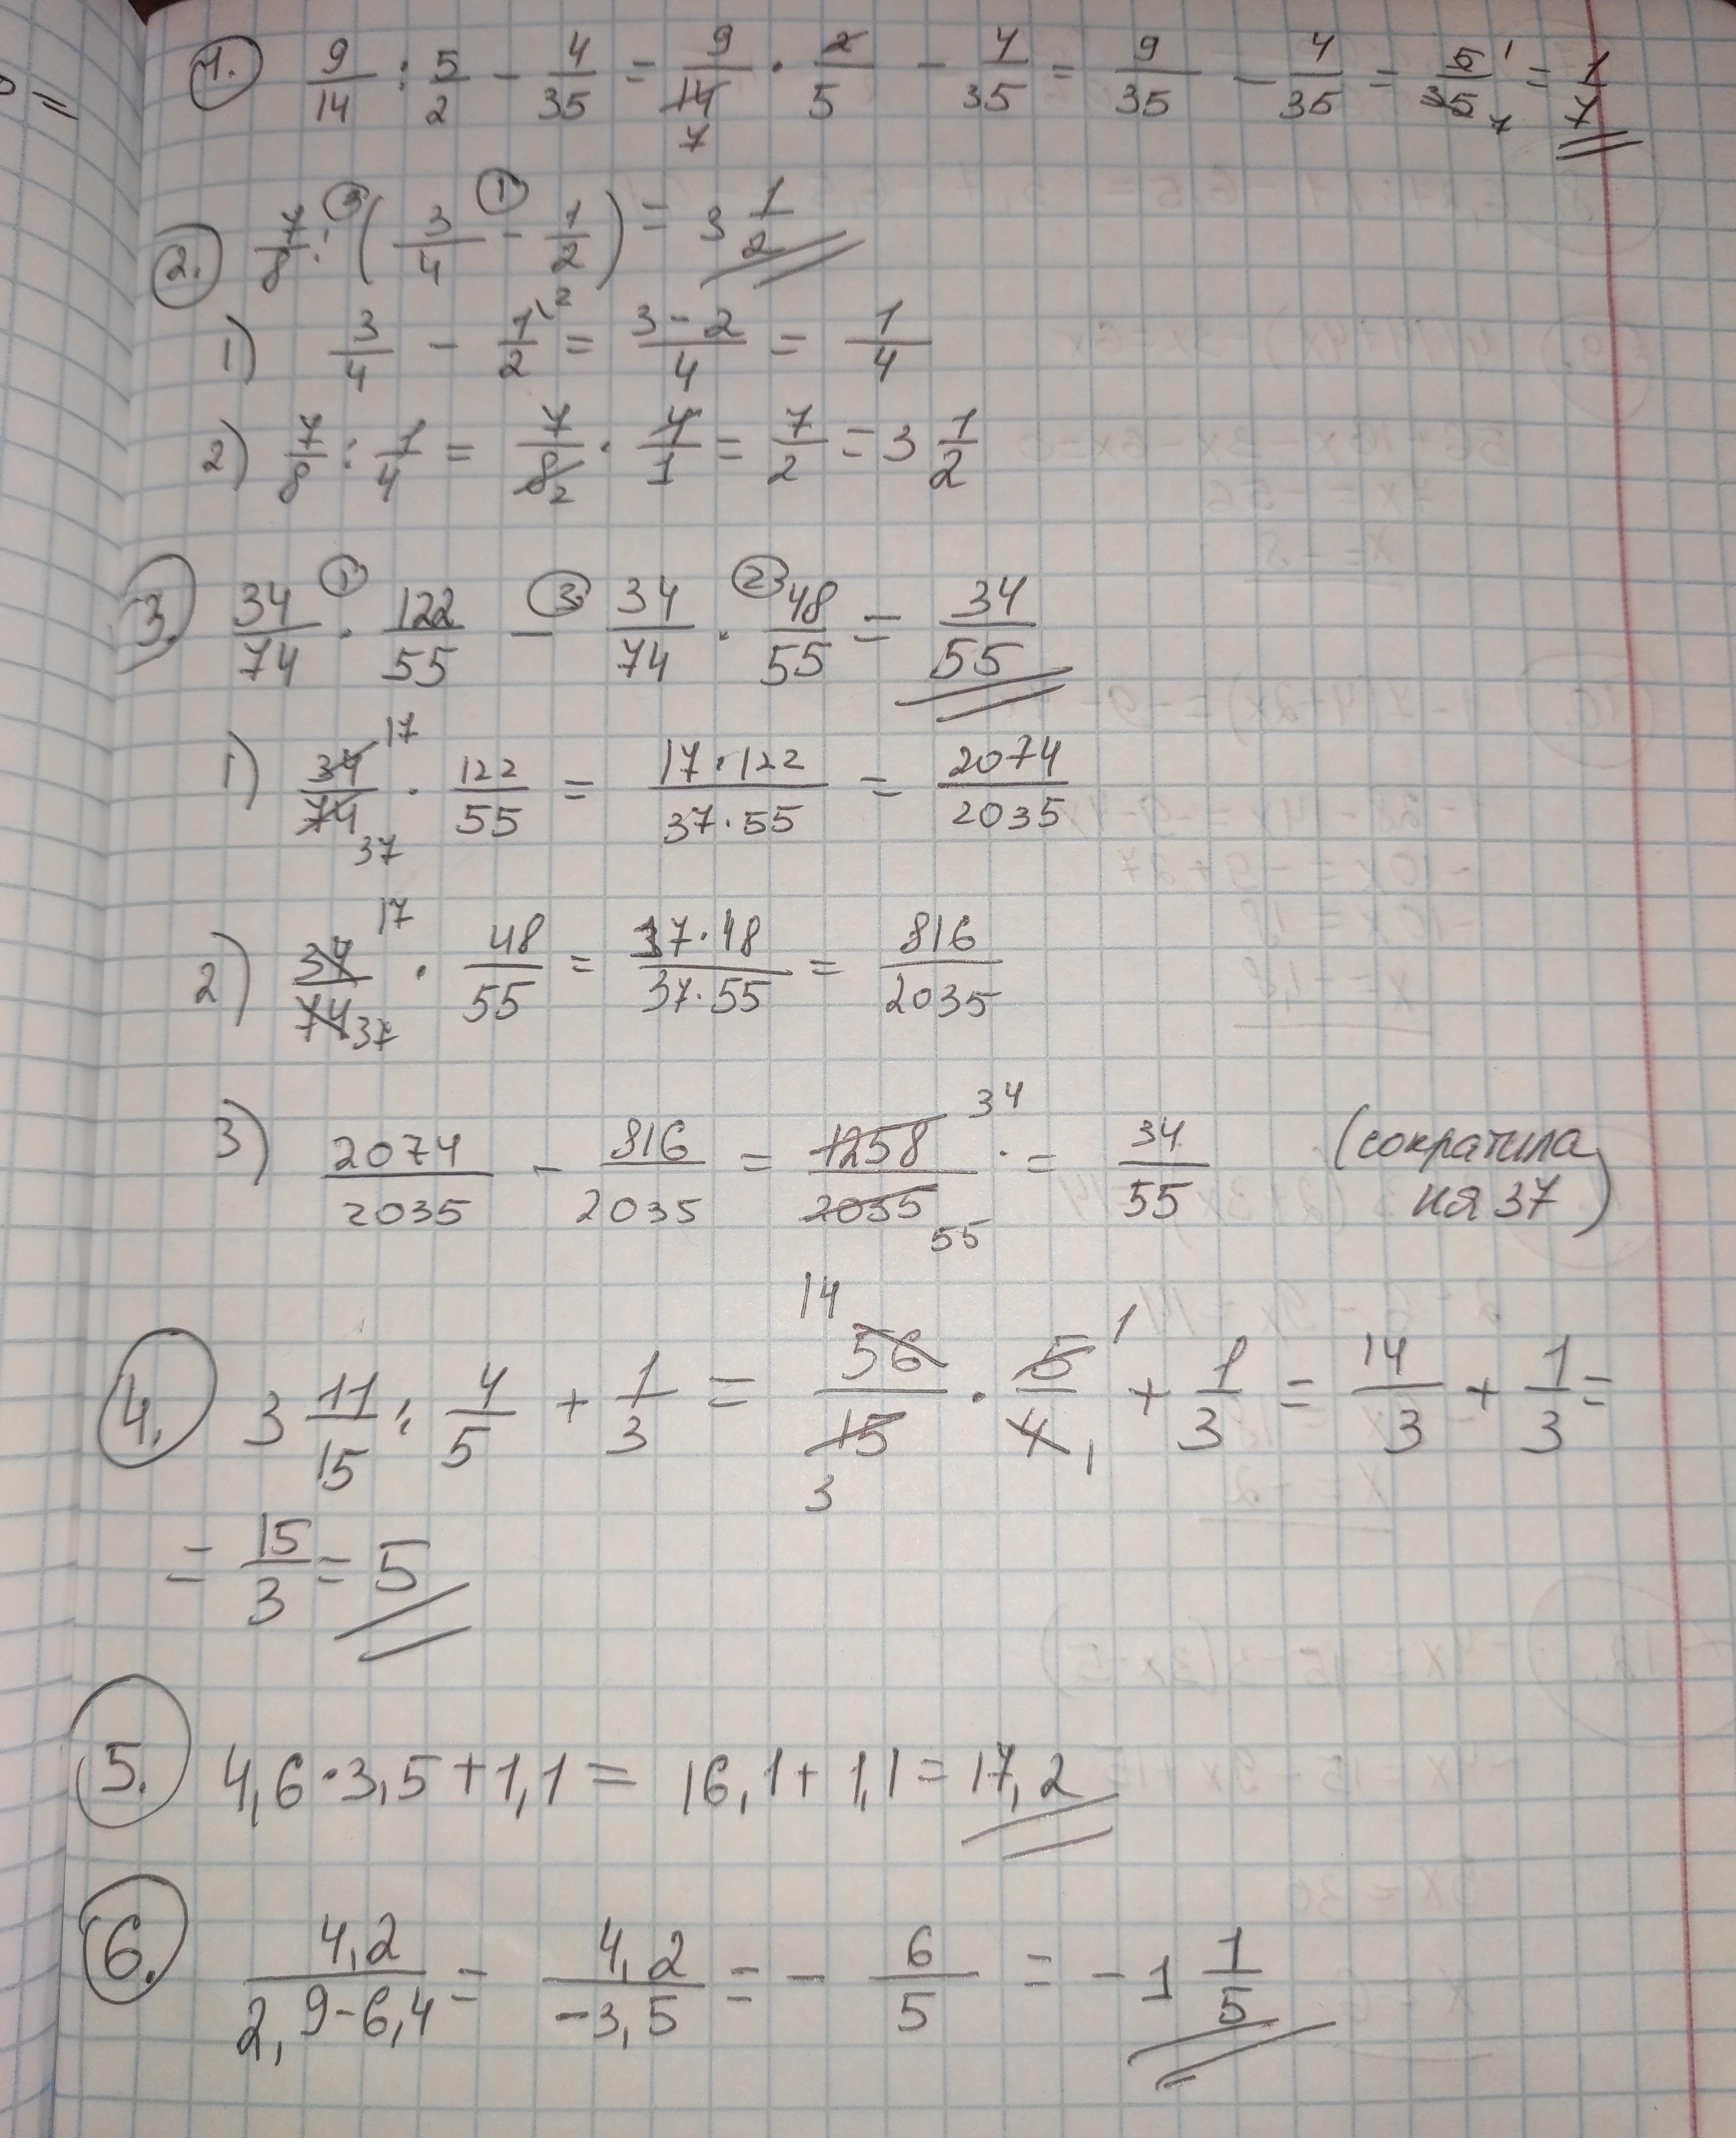 1. 9/14 : 5/2 - 4/35 = 9/14 7 · 2/5 - 4/35 = 9/35 - 4/35 = 5/35 1 7 = 1/7
2. 7/8 : (3/4 - 1/2) = 3 1/2
1) 3/4 - 1/2 \2 = 3-2/4 = 1/4
2) 7/8 : 1/4 = 7/8 2 · 4/1 = 7/2 = 3 1/2
3. 34/74 · 122/55 - 34/74 · 48/55 = 34/55
1) 34/74 17 37 · 122/55 = 17·122/37·55 = 2074/2035
2) 34/74 17 37 · 48/55 = 17·48/37·55 = 816/2035
3) 2074/2035 - 816/2035 = 1258/2035 34 55 = 34/55 (сократила на 37)
4. 3 11/15 : 4/5 + 1/3 = 14 56/15 3 · 5/4 1 1 + 1/3 = 14/3 + 1/3 =
= 15/3 = 5
5. 4,6·3,5+1,1 = 16,1+1,1 = 17,2
6. 4,2/2,9-6,4 = 4,2/-3,5 = - 6/5 = -1 1/5